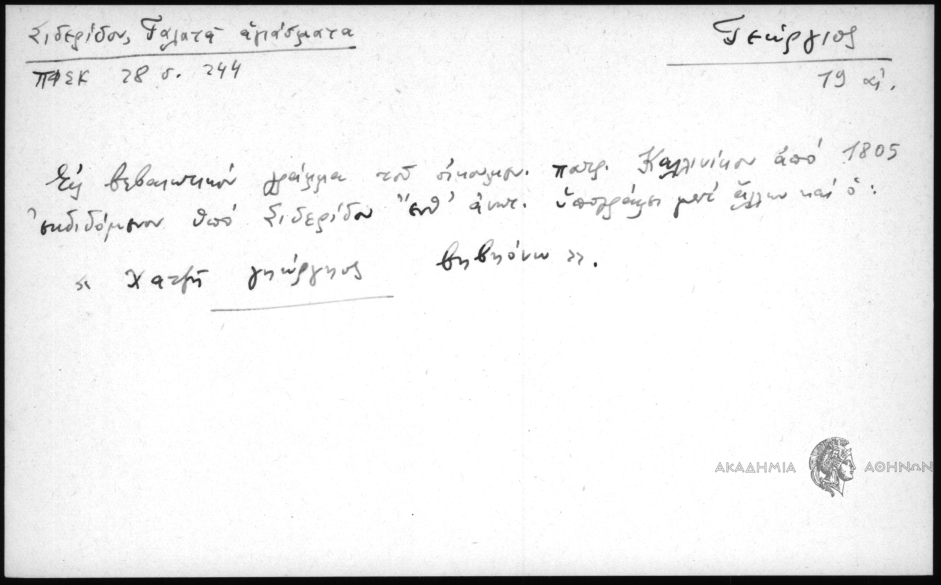 Σιδερίδου, Γαλατᾶ ἁγιάσματα
Γεώργιος
ΠΦΣΚ 28 σ. 244
19 αἰ.
Εἰς βεβαιωτικόν γράμμα τοῦ οἰκουμεν. πατρ. Καλλινίκου ἀπό 1805
ἐκδιδόμενον ὑπό Σιδερίδου ἔνθ' ἀνωτ. ὑπογράφει μετ' ἄλλων καί ὁ:
« Χατζῆ γηώργηος βηβηόνω ».
ΑΚΑΔΗΜΙΑ ΑΘΗΝΩΝ